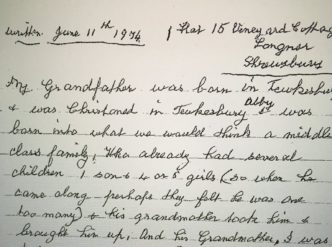 written June 11th 1974 Flat 15 Vineyard Cottag
Longnor
Shrewsbury
My Grandfather was born in Tewkesbu
& was Christened in Tewkesbury abby was
born into what we would think a middle
class family, Who already had several
children 1 son & 4 or 5 girls (so when he
came along perhaps they felt he was one
too many) & his grandmother took him &
brought him up, And his Grandmother, I was